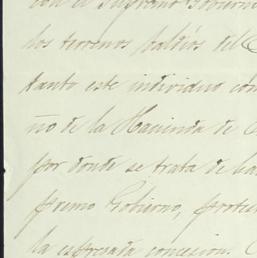 con el Supremo Gobierno
los terrenos baldíos del
tanto este individuo com
ño de la Hacienda de
por donde se trata de ha
premo Gobierno, protes
la espresada concesion.